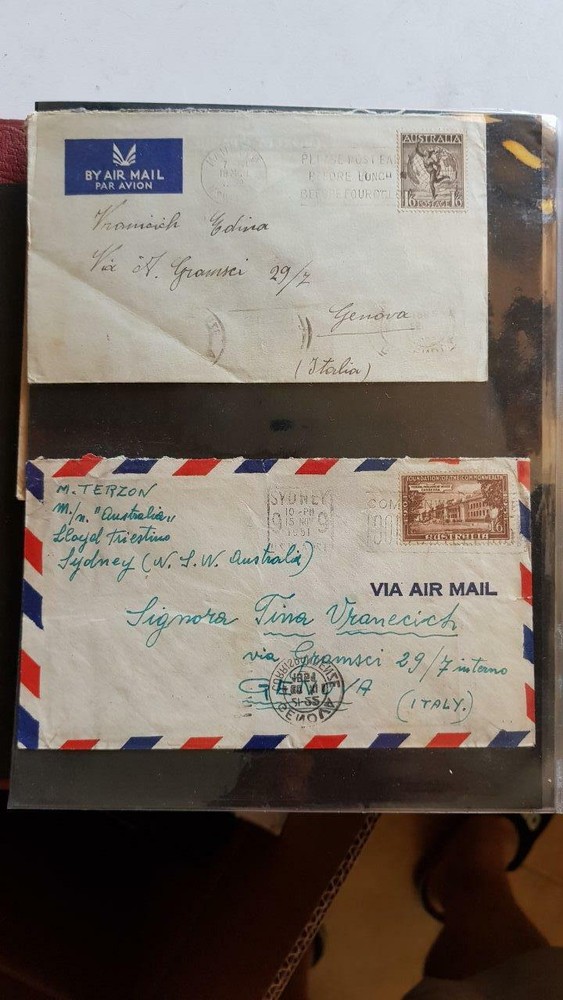 BY AIR MAIL
PAR AVION
PLEASE POST EARLY
BEFORE LUNCH
AUSTRALIA
1/6 POSTAGE 1/6
Edina
Via A. Gramsci 29/7
Genova
(Italia)
M. TERZON
m/n. "Australia"
Lloyd Triestino
Sydney (N.S.W. Australia)
SYDNEY
10-PM
1951
9 9
FOUNDATION OF THE COMMONWEALTH
1/6
AUSTRALIA
VIA AIR MAIL
Signora Tina Vranecich
via Gramsci 29/7 interno
GENOVA
(ITALY.)
GENOVA